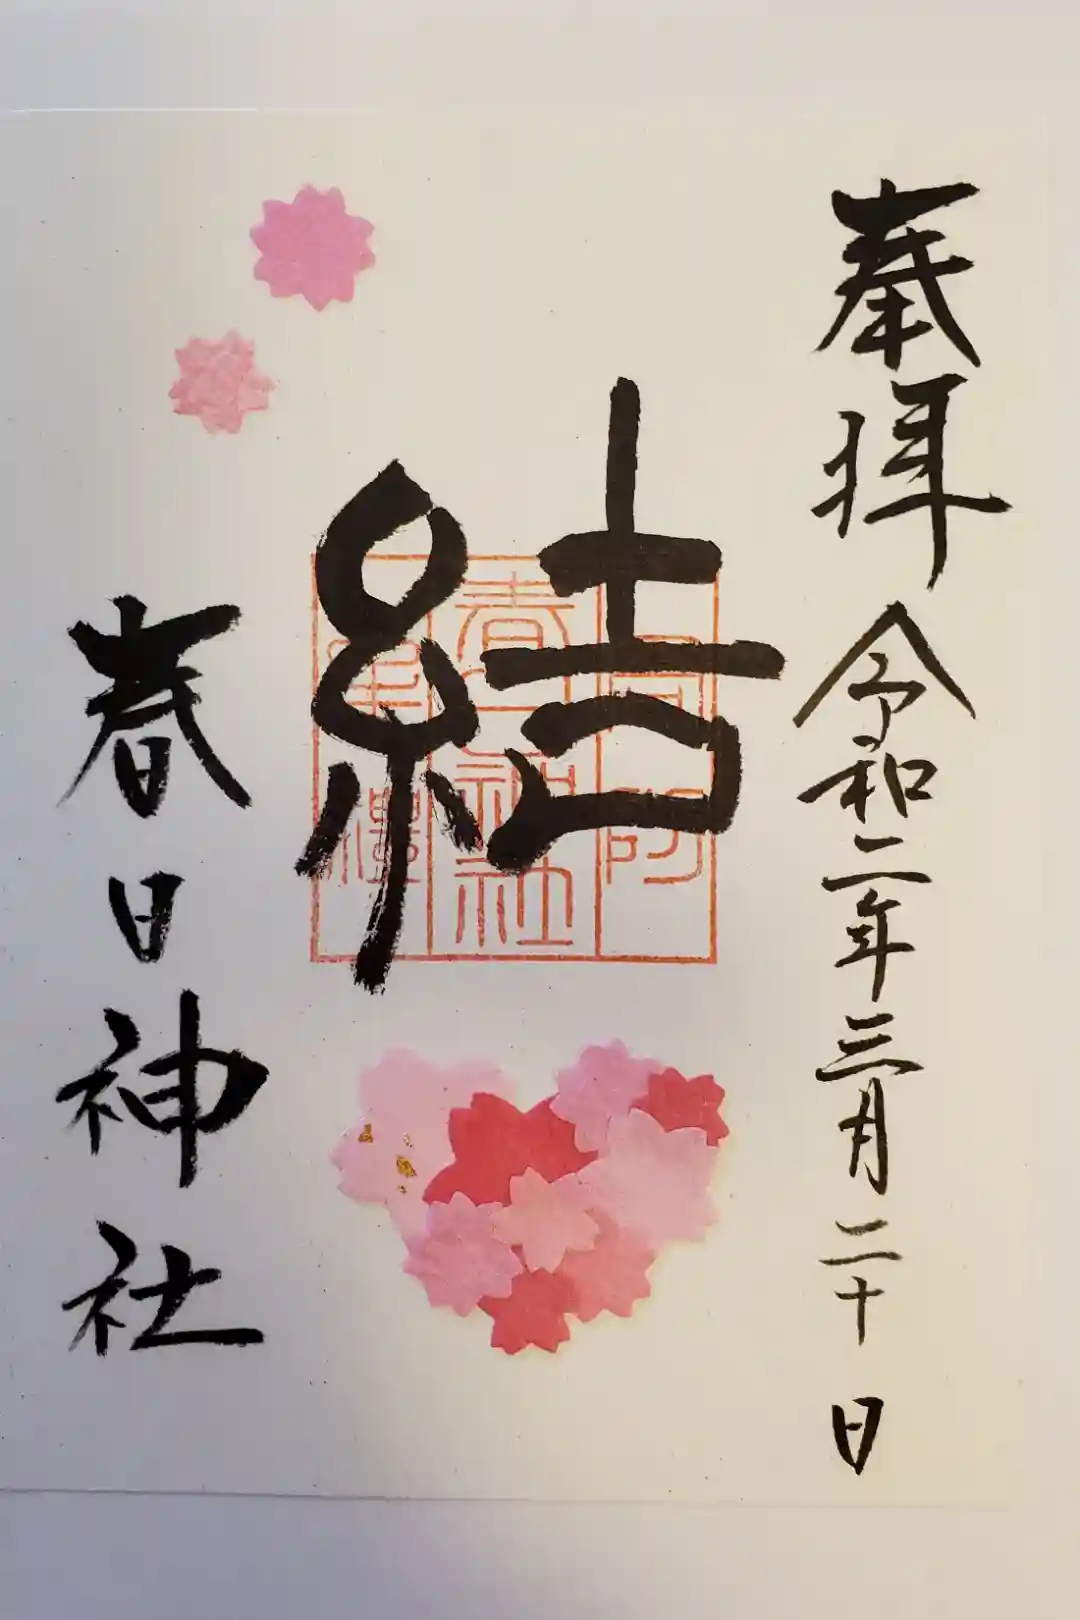 奉拝 令和二年三月二十日
結
春日神社
春日神社